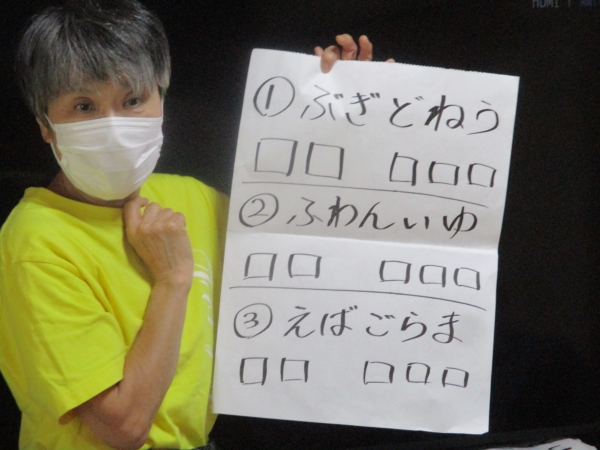 ①ぶぎどねう
□□ □□□
②ふわんいゆ
□□ □□□
③えばごらま
□□ □□□